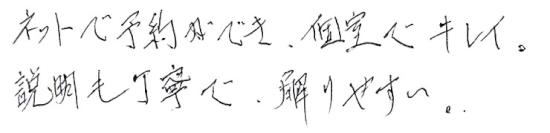 ネットで予約ができ、個室でキレイ。
説明も丁寧で、解りやすい。